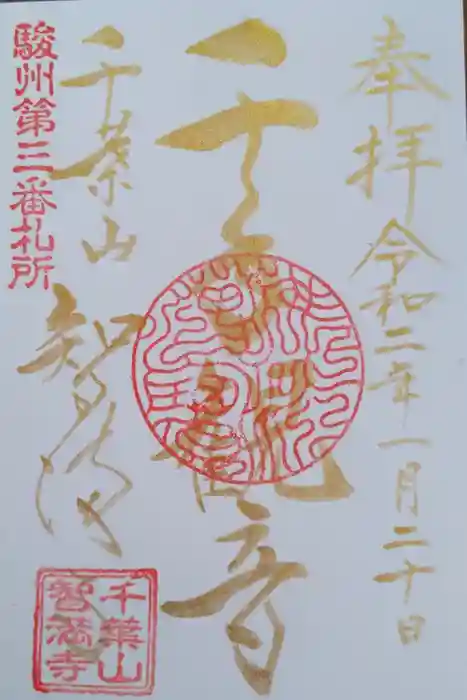 奉拝 令和二年一月二十日
千手観音
千葉山
智満寺
駿州第三番札所
千葉山
智満寺